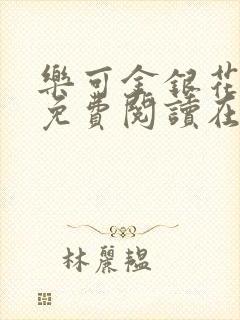 樂可金銀花
免費閱讀在
林麗韞